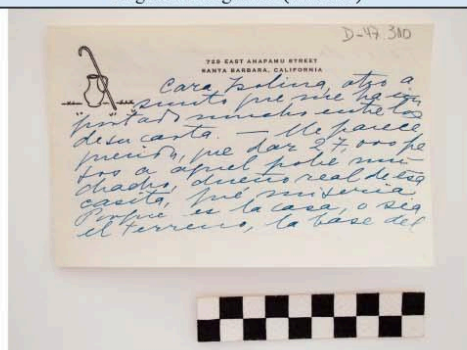 D-47 310
725 EAST ANAPAMU STREET
SANTA BARBARA, CALIFORNIA
Cara Isolina, otro a
sunto que me ha im
portado mucho entre los
de su carta. — Me parece
que dar 27,000 pe
sos a aquel pobre mu
chacho, dueño real de esa
casita, qué miseria.
Porque es la casa, o sea
el terreno, la base del